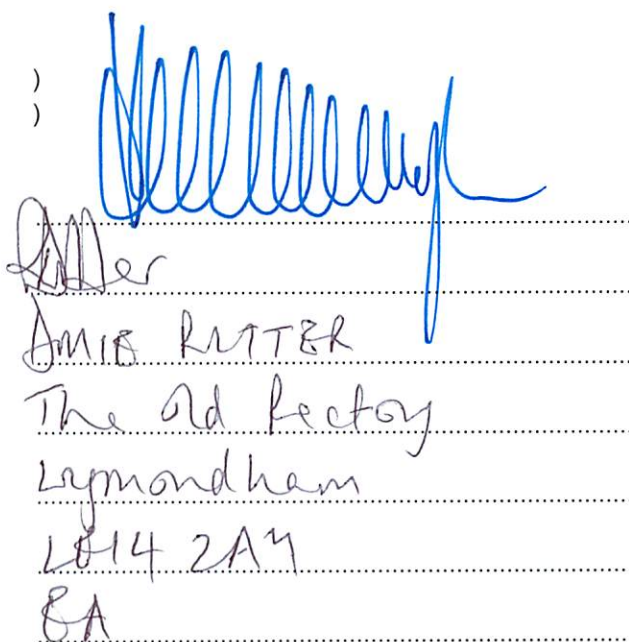 )
)
Rutter
AMIE RUTTER
The Old Rectory
Wymondham
LE14 2AY
EA